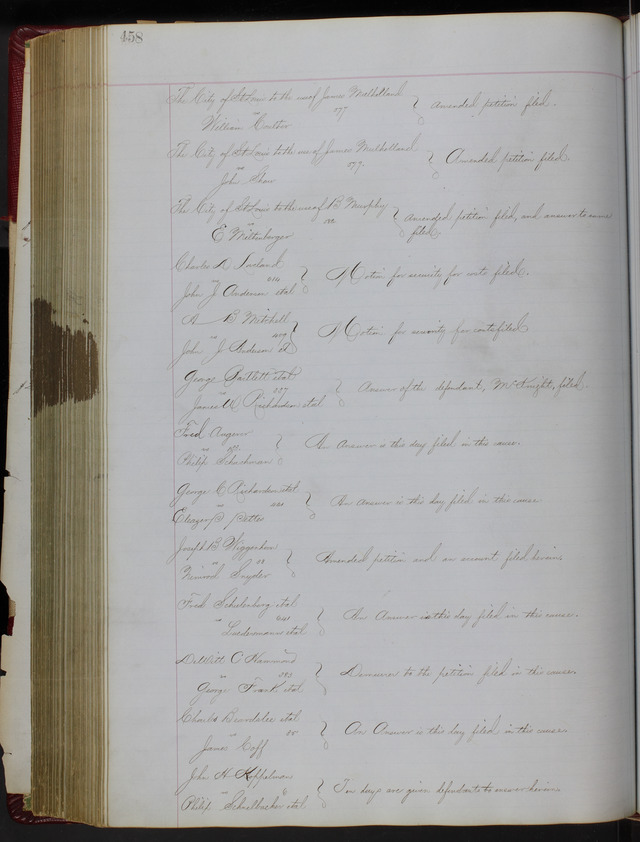 458
The City of St Louis to the use of James Mulholland
177
Amended petition filed.
William Coulter
The City of St Louis to the use of James Mulholland
177
Amended petition filed.
John Shaw
The City of St Louis to the use of B Murphy
Amended petition filed, and answer to
filed.
E Wettenberger
Charles A Loveland
Motion for security for costs filed.
John J Anderson et al
A B Mitchell
Motion for security for costs filed
John J Anderson et al
George Bartlett et al
Answer of the defendant, McKnight, filed.
James W Richardson et al
Fred Angerer
An Answer is this day filed in this cause.
Philip Schuchman
George C Richardson et al
An Answer is this day filed in this cause
Eleazer P Pettes
Joseph B Wiggenhan
Amended petition and an account filed herein.
Snyder
Fred Schulenburg et al
An Answer is this day filed in this cause.
et al
DeWitt C Hammond
Demurrer to the petition filed in this cause.
George Frank et al
Charles Beardslee et al
An Answer is this day filed in this cause
James Goff
John H Koppelman
Ten days are given defendants to answer herein.
Philip et al